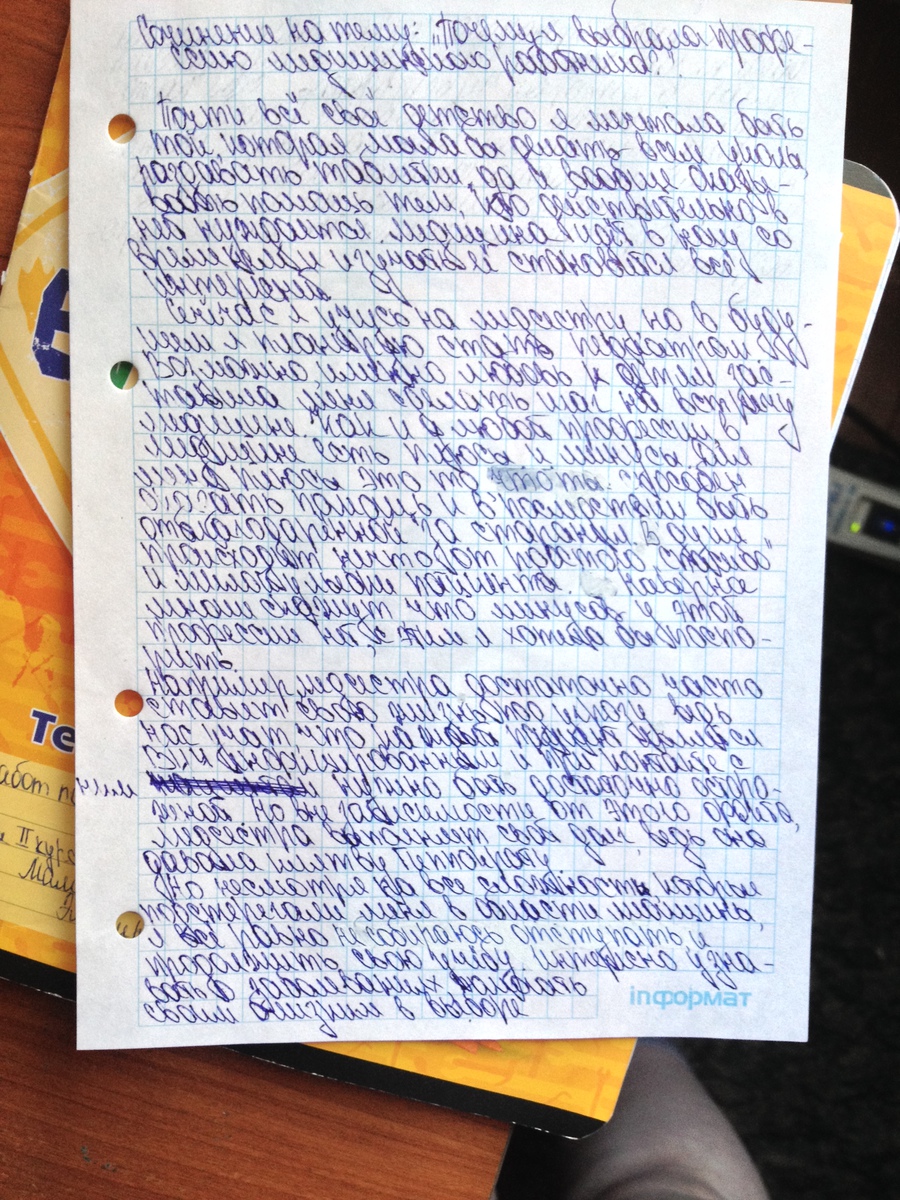 Сочинение на тему: "Почему я выбрала профе-
ссию медицинского работника?"
Почти всё своё детство я мечтала быть
той которая могла бы делать всем уколы,
раздавать таблетки, да и вообще оказы-
вать помощь тем, кто действительно в
ней нуждается. Медицина идёт в ногу со
временем и изучать её становится всё
интересней.
Сейчас я учусь на медсестру но в буду-
щем я планирую стать педиатром.
Возможно именно любовь к детям зас-
тавила меня сделать шаг на встречу
медицине. Как и в любой профессии в
медицине есть плюсы и минусы. Для
меня плюсы это то что ты способен
оказать помощь и в последствии быть
отблагодаренной за старания. В душе
происходит от простого "спасибо"
и милой улыбки пациента. Наверное
многие скажут что минусов у этой
профессии нет, с ним я хотела бы поспо-
рить.
Например, медсестра достаточно часто
ставит свою жизнь под угрозу ведь
нас учат что каждый пациент является
ВИЧ инфицированным и при контакте с
ним нужно быть достаточно осторо-
жной. Но вне зависимости от этого
медсестра выполняет свой долг, ведь она
давала клятву Гиппократу.
Но несмотря на все сложности которые
подстерегали меня в области медицины,
я всё равно не собираюсь отступать и
продолжить свою учёбу, интересно узна-
вать о заболеваниях
своим в выборе
інформат
Те
абот по
II курс